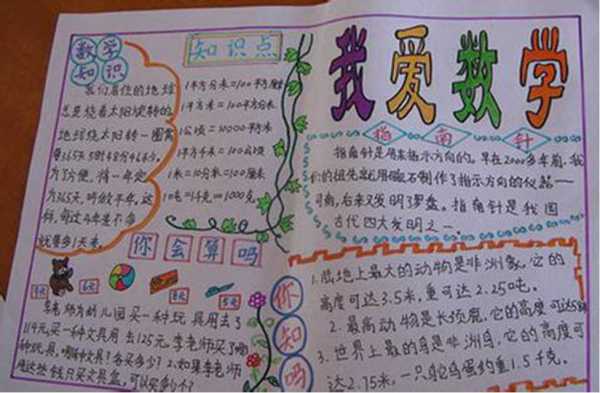 数学
知识
我们居住的地球
总是绕着太阳旋转的
地球绕太阳转一圈需
要365天5时48分46秒。
为了方便，将一年定
为365天，叫做平年，这
样，每过4年差不多
就要多1天来。
知识点
1平方分米=100平方厘米
1平方米=100平方分米
1公顷=10000平方米
1平方千米=100公顷
1米=10分米=100厘米
10吨=1千克=1000克
你会算吗
李老师为幼儿园买一种玩具用去了
114元买一种文具用去125元李老师买了哪
种玩具，哪种文具？各买多少？2.如果李老师
用这些钱只买文具盒，可以买多少个？
我爱数学
指南针
指南针是用来指示方向的。早在2000多年前，我
们的祖先就用磁石制作了指示方向的仪器——
司南，后来又发明了罗盘。指南针是我国
古代四大发明之一。
你知吗
1.陆地上最大的动物是非洲象，它的
高度可达3.5米，重可达2.25吨。
2.最高动物是长颈鹿，它的高度可达5米
3.世界上最的鸟是非洲鸟，它的高度可
达2.75米，一只鸵鸟蛋约重1.5千克。